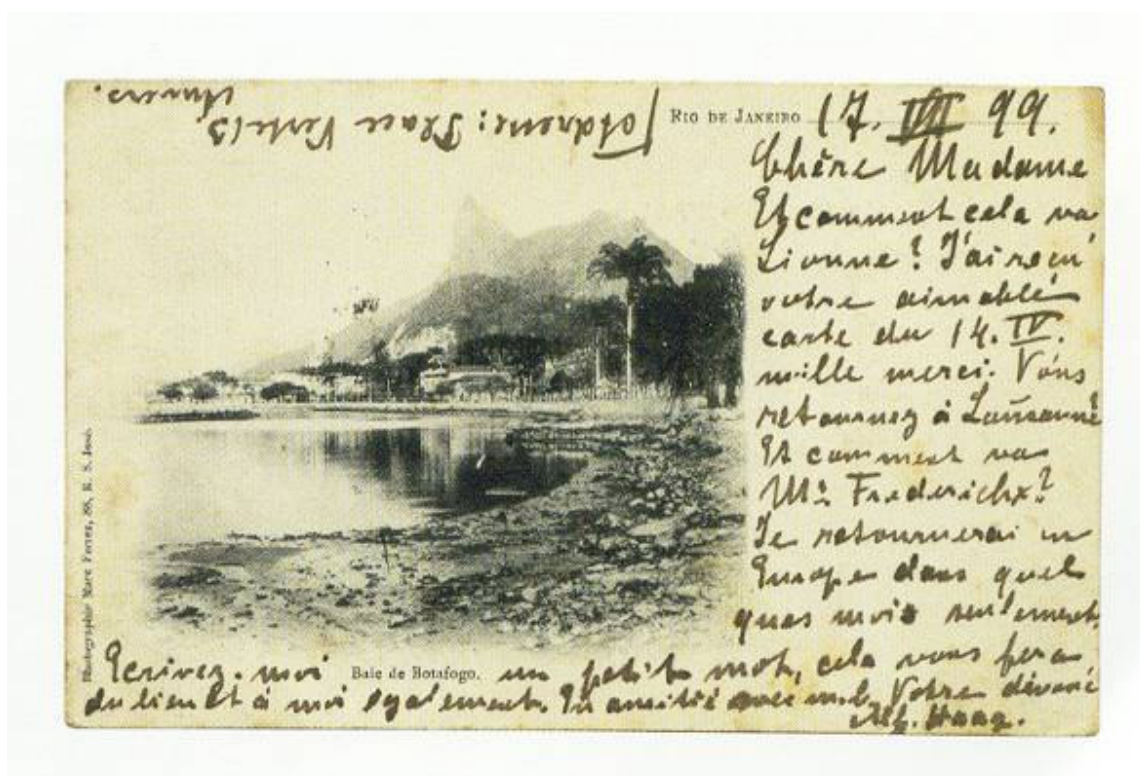 RIO DE JANEIRO 17. VII 99.
Chère Madame
Et comment cela va
Lionne? J'ai reçu
votre aimable
carte du 14. IV.
mille merci. Vous
retournez à Lausanne?
Et comment va
Mr Frederichx?
Je retournerai en
Europe dans quel
ques mois seulement.
Ecrivez-moi un petit mot, cela vous fera
du bien et à moi également. En amitié votre dévoué
Alf. Haag.
Baie de Botafogo.
Photographie Marc Ferrez, 88, R. S. José.
Place
Anvers.